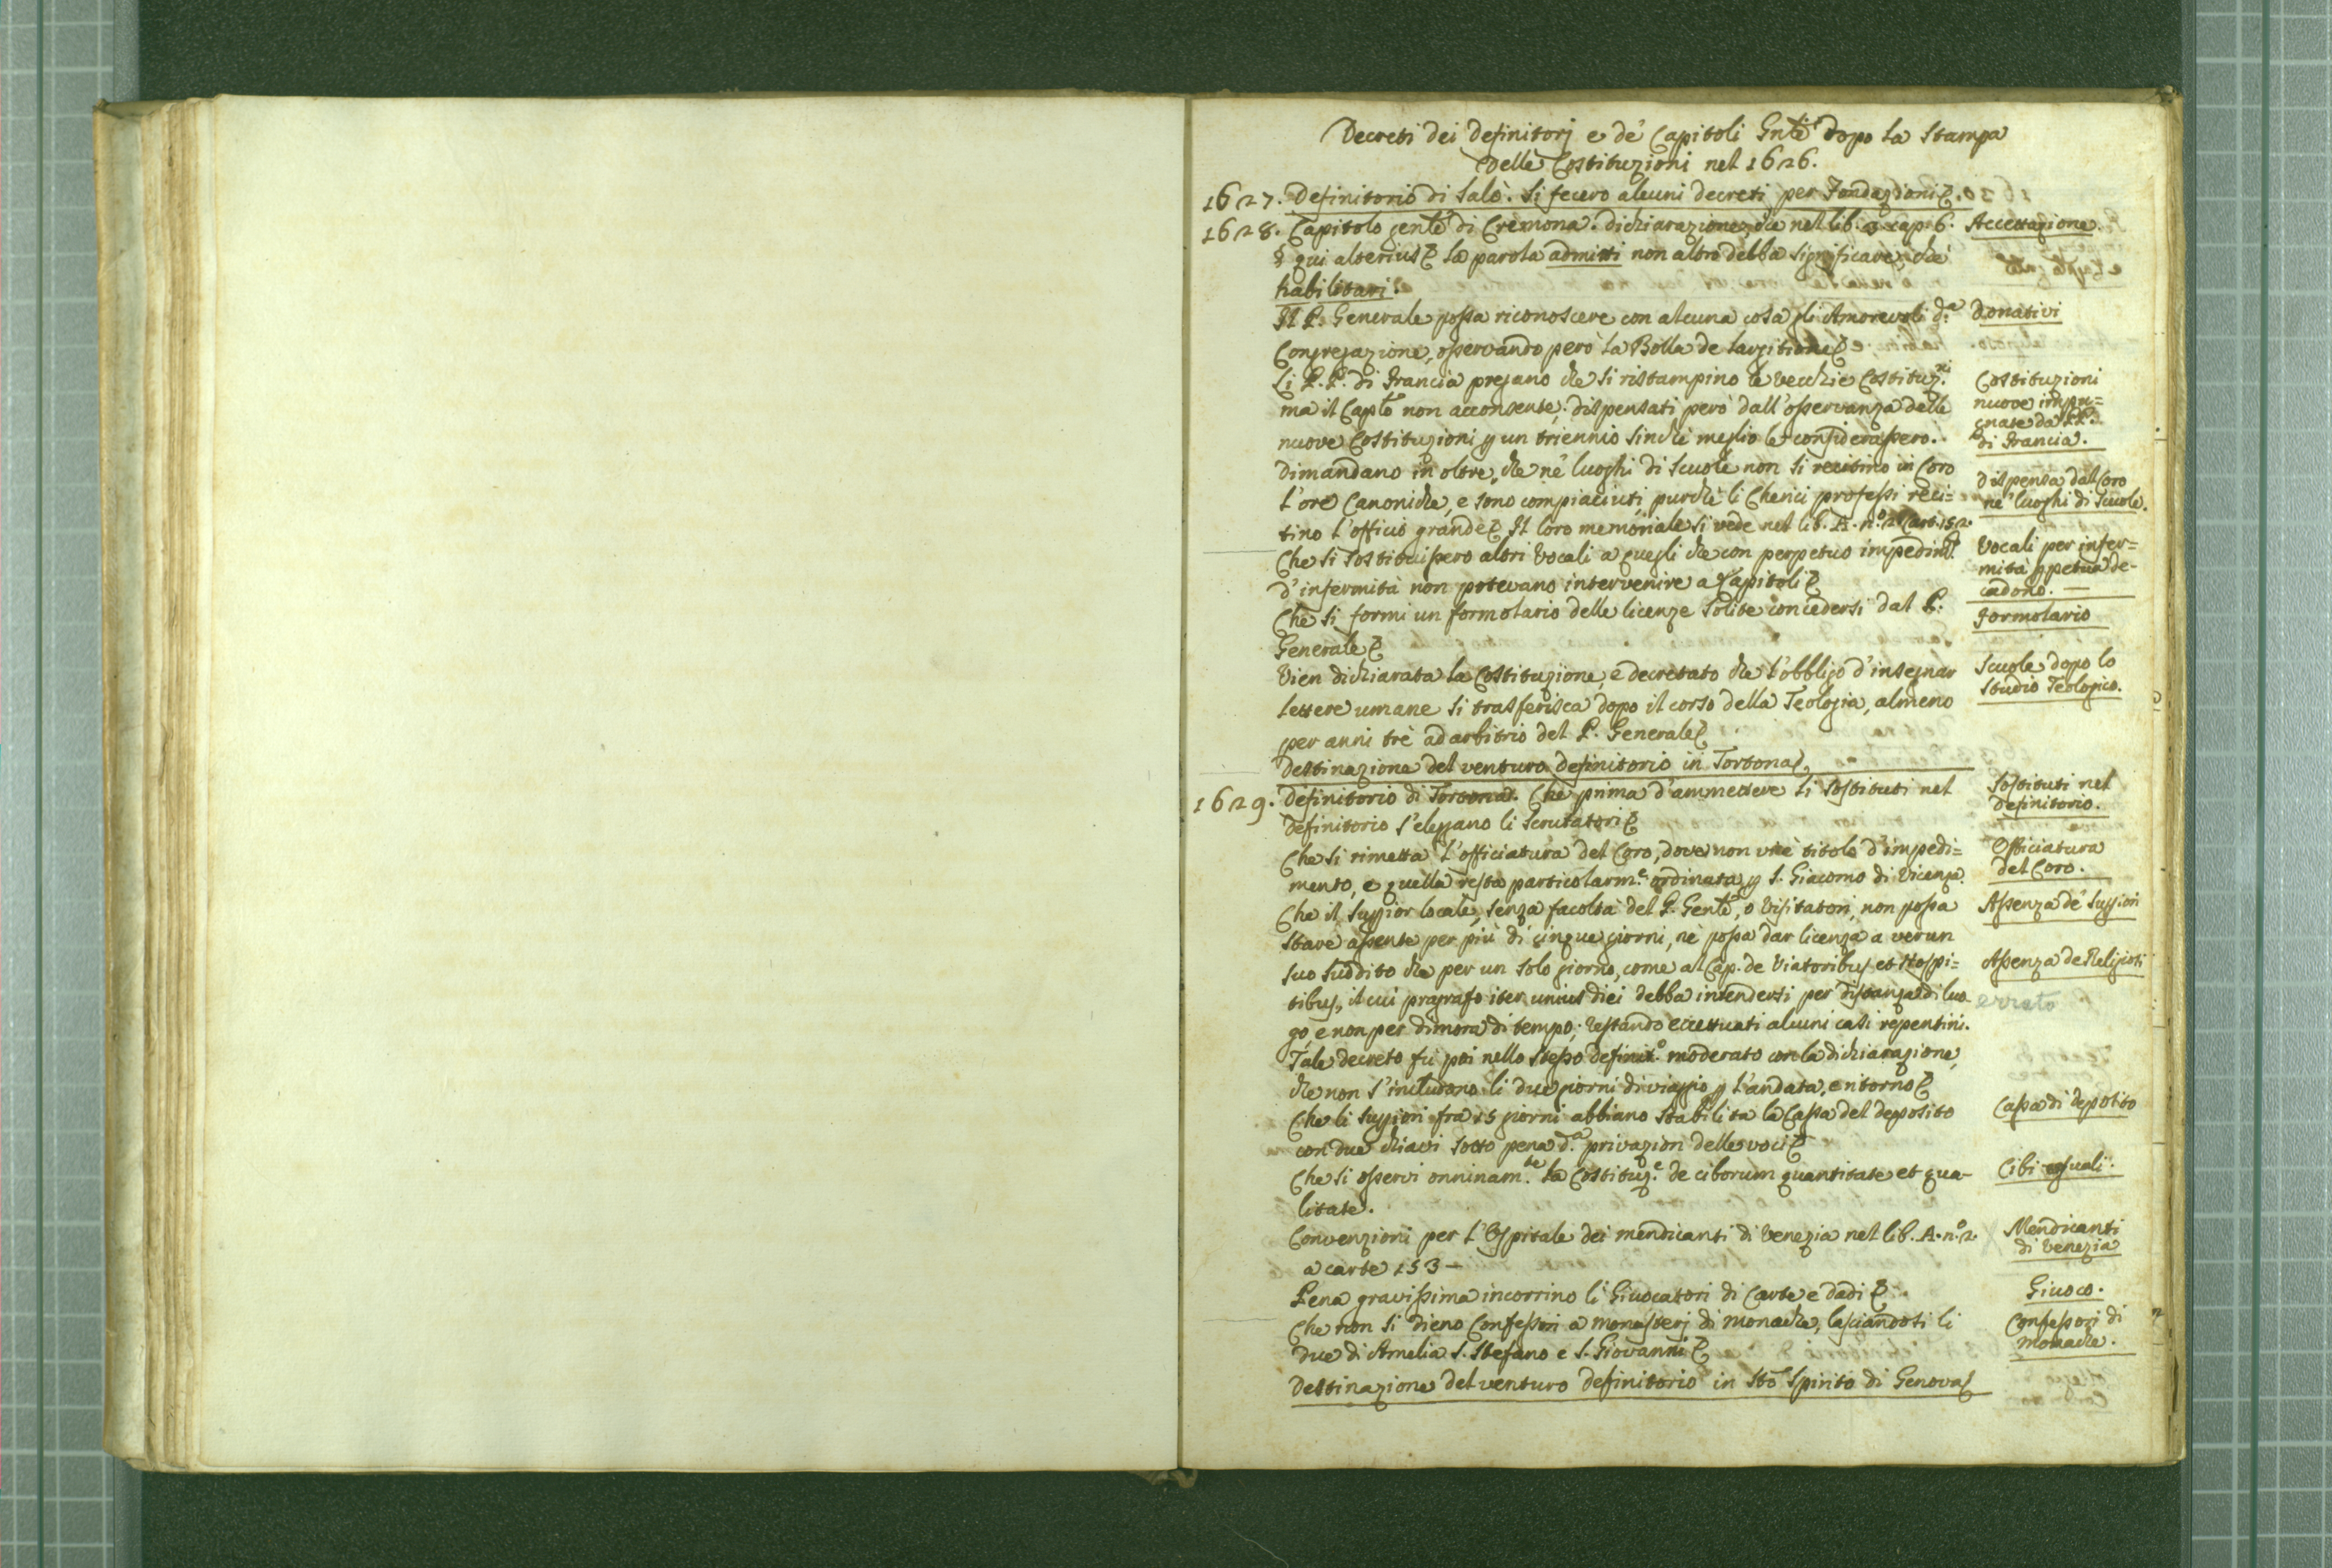 Decreti dei Definitorj e de' Capitoli Gnli dopo la Stampa
delle Costituzioni nel 1626.
1627. Definitorio di Salò. Si fecero alcuni decreti per Fondazioni
1628. Capitolo genle di Cremona. dichiarazione, che nel lib. cap. 6. Accettazione.
§ qui alterius la parola admitti non altro debba significare, che
habilitari.
Il P. Generale possa riconoscere con alcuna cosa gli Amorevoli d.a Donativi
Congregazione, osservando però la Bolla de largitione
Li P.P. di Francia pregano che si ristampino le vecchie Costituz.ni Costituzioni
ma il Caplo non acconsente; dispensati però dall'osservanza delle nuove impu=
nuove Costituzioni p un triennio sinchè meglio le considerassero. gnate da PP.
di Francia.
Dimandano in oltre, che ne' luoghi di Scuole non si recitino in Coro dispensa dal Coro
l'ore Canoniche, e sono compiaciuti, purchè li Cherici professi reci= ne' luoghi di Scuole.
tino l'officio grande Il loro memoriale si vede nel lib. A. n.o 2. Cart. 152.
Che si sostituissero altri Vocali a quegli che con perpetuo impedim.to Vocali per infer=
d'infermità non potevano intervenire a Capitoli mità ppetua de-
cadono. —
Che si formi un formolario delle licenze solite concedersi dal P. Formolario
Generale
Vien dichiarata la Costituzione, e decretato che l'obbligo d'insegnar Scuole dopo lo
lettere umane si trasferisca dopo il corso della Teologia, almeno Studio Teologico.
per anni trè ad arbitrio del P. Generale
Destinazione del venturo definitorio in Tortona
1629. Definitorio di Tortona. Che prima d'ammettere li Sostituti nel Sostituti nel
definitorio s'eleggano li Scrutatori definitorio.
Che si rimetta l'officiatura del Coro, dove non v'è titolo d'impedi= Officiatura
mento, e quella resta particolarm.e ordinata p S. Giacomo di Vicenza. del Coro.
Che il Suppior locale, senza facoltà del P. Genle, o Visitatori, non possa Assenza de' Suppiori
stare assente per più di cinque giorni, nè possa dar licenza a verun
suo suddito che per un solo giorno, come al Cap. de Viatoribus et Hospi= Assenza de Religiosi
tibus, il cui pragrafo iter unius diei debba intendersi per distanza di luo- errato
go, e non per dimora di tempo; restando eccettuati alcuni casi repentini.
Tale decreto fù poi nello stesso definit.o moderato con la dichiarazione,
che non s'includono li due giorni di viaggio p l'andata, e ritorno
Che li Suppiori fra 15 giorni abbiano stabilita la Cassa del deposito Cassa di deposito
con due chiavi sotto pena d.a privazion delle voci
Che si osservi onninam.te la Costituz.e de ciborum quantitate et qua- Cibi
litate.
Convenzioni per l'Ospitale dei mendicanti di Venezia nel lib. A. n.o 2. Mendicanti
a carte 153 — di Venezia
Pena gravissima incorrino li Giuocatori di Carte e dadi Giuoco.
Che non si dieno Confessori a monasterj di monache, lasciandosi li Confessori di
due di Amelia S. Stefano e S. Giovanni monache.
Destinazione del venturo definitorio in Sto Spirito di Genova